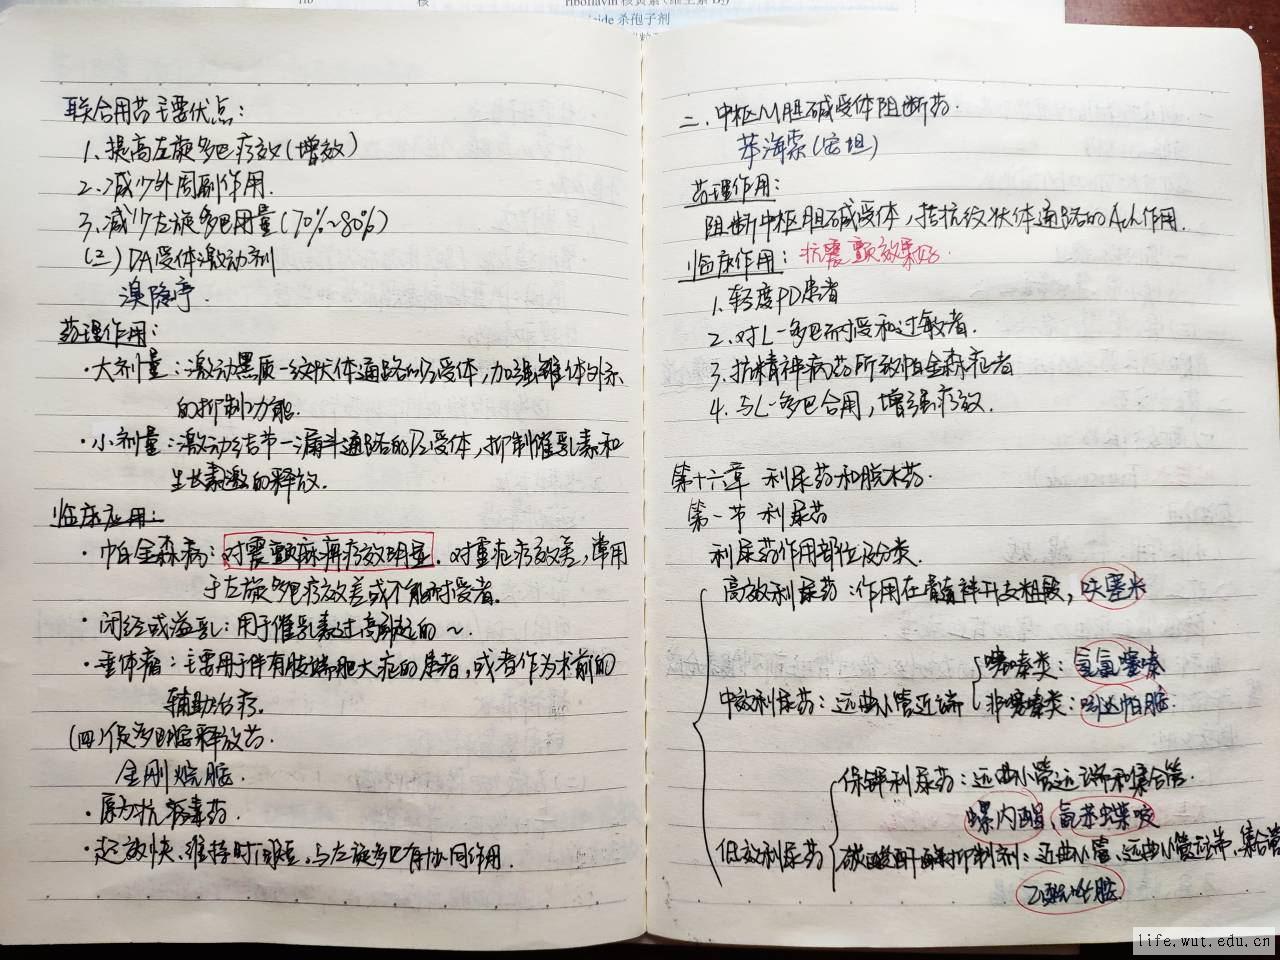 riboflavin 核黄素(维生素B₂)
rib
核
cide 杀孢子剂
联合用药主要优点:
1、提高左旋多巴疗效(增效)
2、减少外周副作用.
3、减少左旋多巴用量(70%~80%)
(三)DA受体激动剂
溴隐亭.
药理作用:
·大剂量:激动黑质-纹状体通路的D₂受体,加强锥体外系
的抑制功能.
·小剂量:激动结节-漏斗通路的D₂受体,抑制催乳素和
生长素激的释放.
临床应用:
·帕金森病:对震颤麻痹疗效明显.对重症疗效差,常用
于左旋多巴疗效差或不能耐受者.
·闭经或溢乳:用于催乳素过高引起的~.
·垂体瘤:主要用于伴有肢端肥大症的患者,或者作为术前的
辅助治疗.
(四)促多巴胺释放药.
金刚烷胺.
·原为抗病毒药
·起效快、维持时间短,与左旋多巴有协同作用.
二、中枢M胆碱受体阻断药.
苯海索(安坦)
药理作用:
阻断中枢胆碱受体,拮抗纹状体通路的Ach作用.
临床作用:抗震颤效果好.
1.轻度PD患者
2.对L-多巴耐受和过敏者.
3.抗精神病药所致帕金森症者
4.与L-多巴合用,增强疗效.
第十六章 利尿药和脱水药.
第一节 利尿药
利尿药作用部位及分类.
高效利尿药:作用在髓袢升支粗段,呋塞米
噻嗪类:氢氯噻嗪
中效利尿药:远曲小管近端
非噻嗪类:吲达帕胺.
保钾利尿药:远曲小管远端和集合管.
螺内酯,氨苯蝶啶
低效利尿药
碳酸酐酶抑制剂:近曲小管、远曲小管远端、集合管
乙酰唑胺.
life.wut.edu.cn